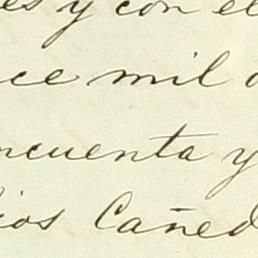 es y con el
ce mil
ncuenta y
ios Cañed